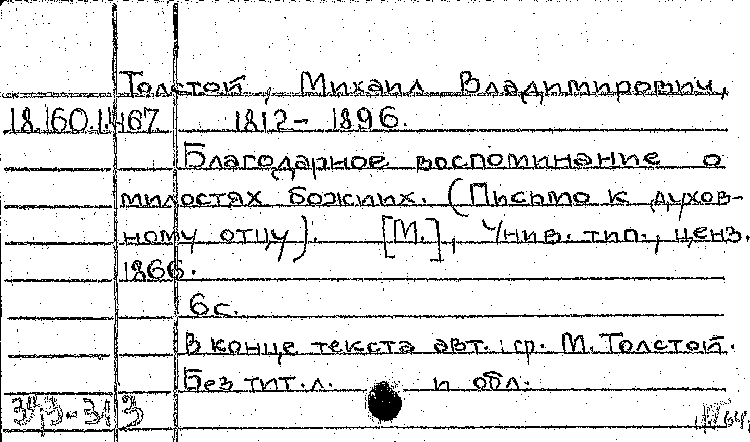 Толстой, Михаил Владимирович,
18.160.1.167 1812- 1896.
Благодарное воспоминание о
милостях божиих. (Письмо к духов-
ному отцу). [М.], Унив. тип., ценз.
1866.
6с.
В конце текста авт.: гр. М. Толстой.
Без тит. л. и обл.